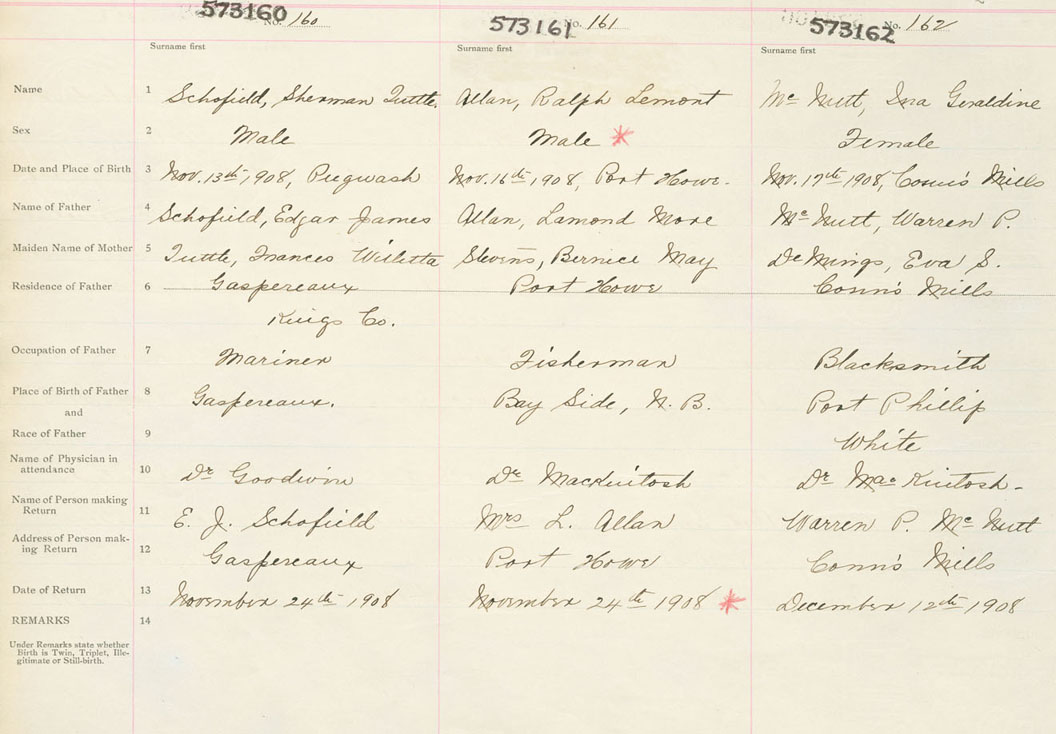 573160 No. 160 573161 No. 161 573162 No. 162
Surname first Surname first Surname first
Name 1 Schofield, Sherman Tuttle. Allan, Ralph Lemont Mc Nutt, Ina Geraldine
Sex 2 Male Male * Female
Date and Place of Birth 3 Nov. 13th 1908, Pugwash Nov. 16th 1908, Port Howe. Nov. 17th 1908, Conn's Mills
Name of Father 4 Schofield, Edgar James Allan, Lamond More Mc Nutt, Warren P.
Maiden Name of Mother 5 Tuttle, Frances Willetta Stevens, Bernice May De Mings, Eva S.
Residence of Father 6 Gaspereaux Port Howe Conn's Mills
Kings Co.
Occupation of Father 7 Mariner Fisherman Blacksmith
Place of Birth of Father 8 Gaspereaux. Bay Side, N. B. Port Phillip
and
Race of Father 9 White
Name of Physician in
attendance 10 Dr Goodwin Dr Mackintosh Dr Mac Kintosh -
Name of Person making
Return 11 E. J. Schofield Mrs L. Allan Warren P. Mc Nutt
Address of Person mak-
ing Return 12 Gaspereaux Port Howe Conn's Mills
Date of Return 13 November 24th 1908 November 24th 1908 * December 12th 1908
REMARKS 14
Under Remarks state whether
Birth is Twin, Triplet, Ille-
gitimate or Still-birth.